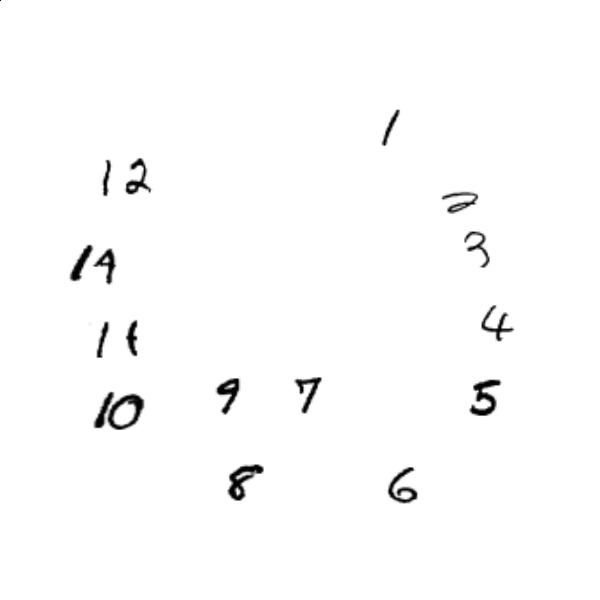 1
12
2
3
14
4
11
10 9 7 5
8 6